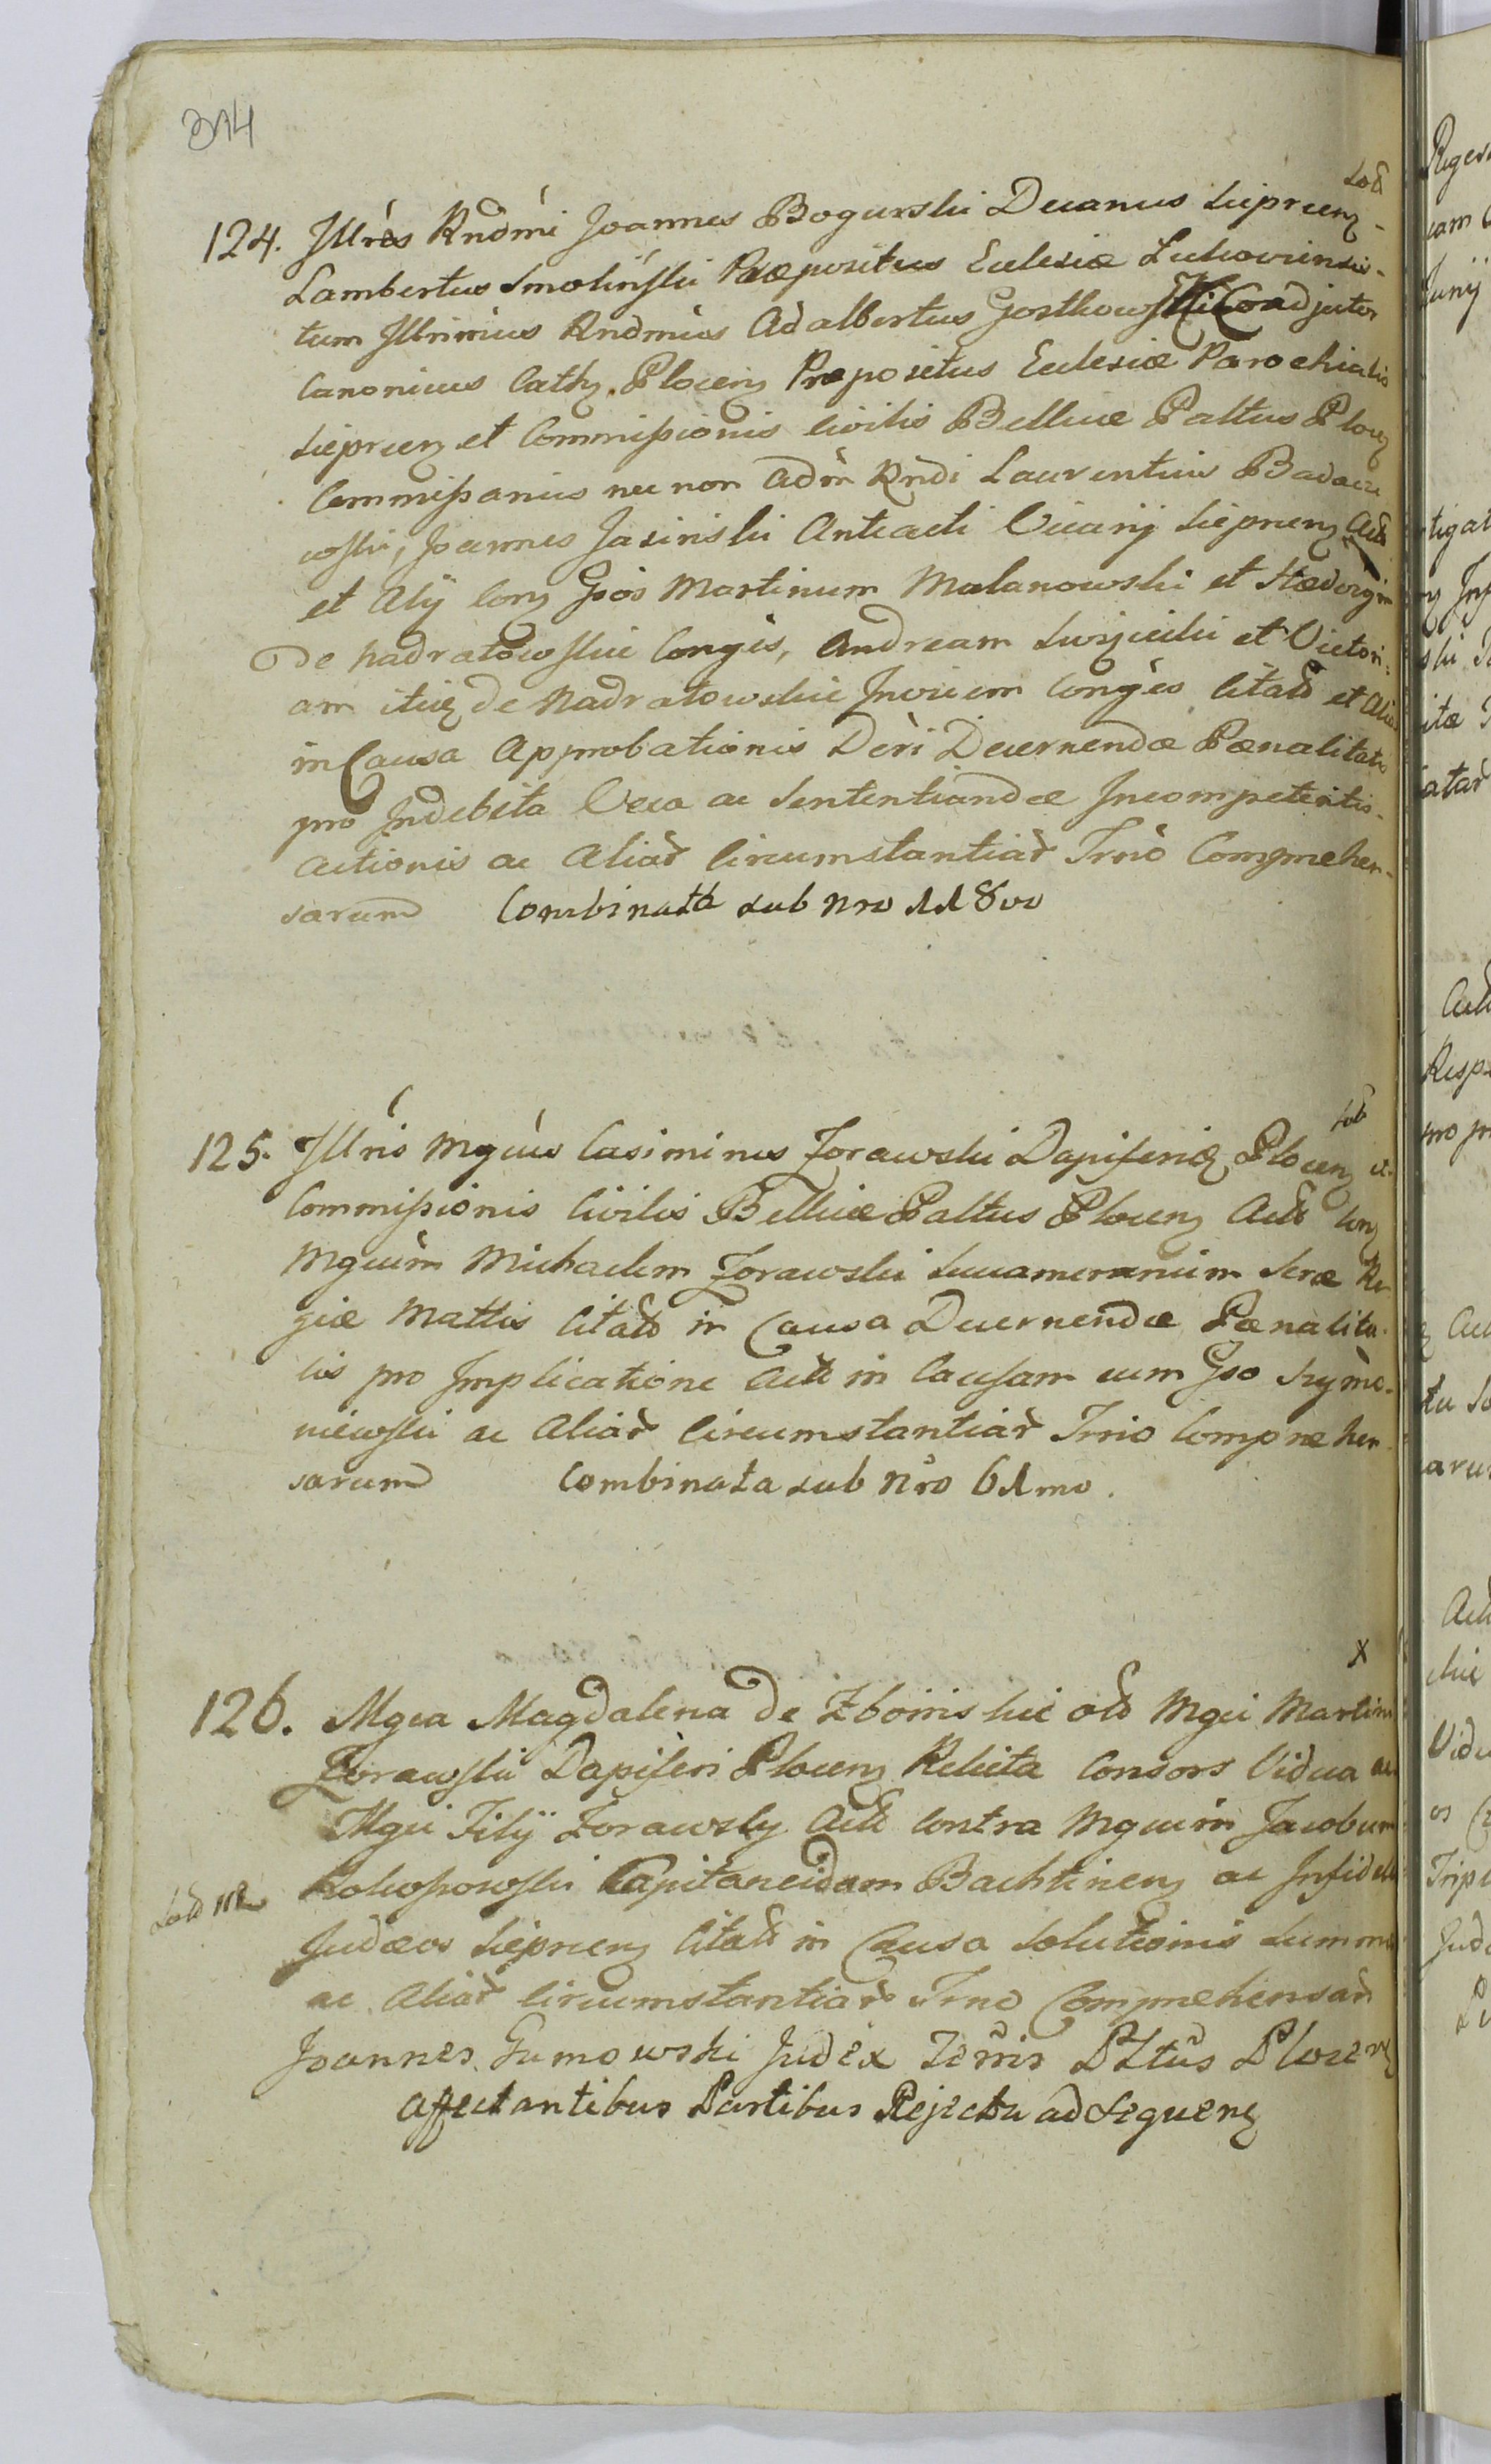 314
Sod
124. Illres Rndmi Joannes Bogurski Decanus Sieprcen
Lambertus Smolinski Præpositus Eclesiæ Lukoviensis
tum Illrimus Rndmus Adalbertus Gostkowski Coadjutor
Canonicus Cath. Plocen Præpositus Eclesiæ Parochialis
Sieprcen et Commissionis Civilis Bellicæ Paltus Plocen
Commissarius nec non Adm Rndi Laurentius
Joannes Jasinski Anteacti Vicarij Sieprcen Act
et Alij Con Gsos Martinum Malanowski et Hedvigim
De Nadratowskie Conges, Andream et Victori-
am itid de Nadratowskie Invicem Conges Citat et Alios
in Causa Approbationis Decri Decernendæ Pænalitatis
pro Indebita Veca ac Sententiandæ Incompetentis
Actionis ac Aliar Circumstantiar Trno Comprehen-
sarum Combinata sub Nro 118vo
Sod
125. Illris Mgcus Casimirus Zorawski Dapiferid Plocen et
Commissionis Civilis Bellicæ Paltus Plocen Act Con
Mgcum Michaelem Zorawski Succamerarium Scræ Re-
giæ Mattis Citat in Causa Decernendæ Pænalita-
tis pro Implicatione Act in Causam cum Gso Szymo-
niewski ac Aliar Circumstantiar Trno Comprehen-
sarum Combinata sub Nro 61mo.
x
126. Mgca Magdalena de Zboinskie olt Mgci Martini
Zorawski Dapiferi Plocen Relicta Consors Vidua ac
Mgci Filij Zorawscy Act Contra Mgcum Jacobum
Kokossowski Capitaneidam Bachtinen ac Infideles
Judæos Sieprcen Citat in Causa Solutionis Summæ
ac Aliar Circumstantiar Trno Comprehensar
Joannes Gumowski Judex Terris Pltus Plocen
Affectantibus Partibus Rejecta ad Sequen